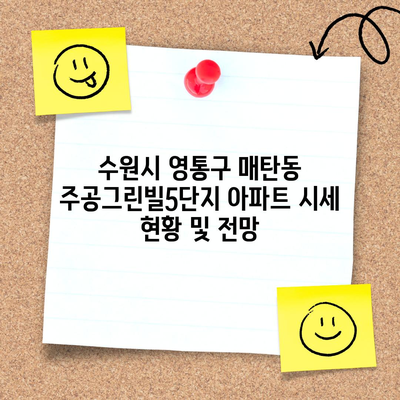 수원시 영통구 매탄동
주공그린빌5단지 아파트 시세
현황 및 전망